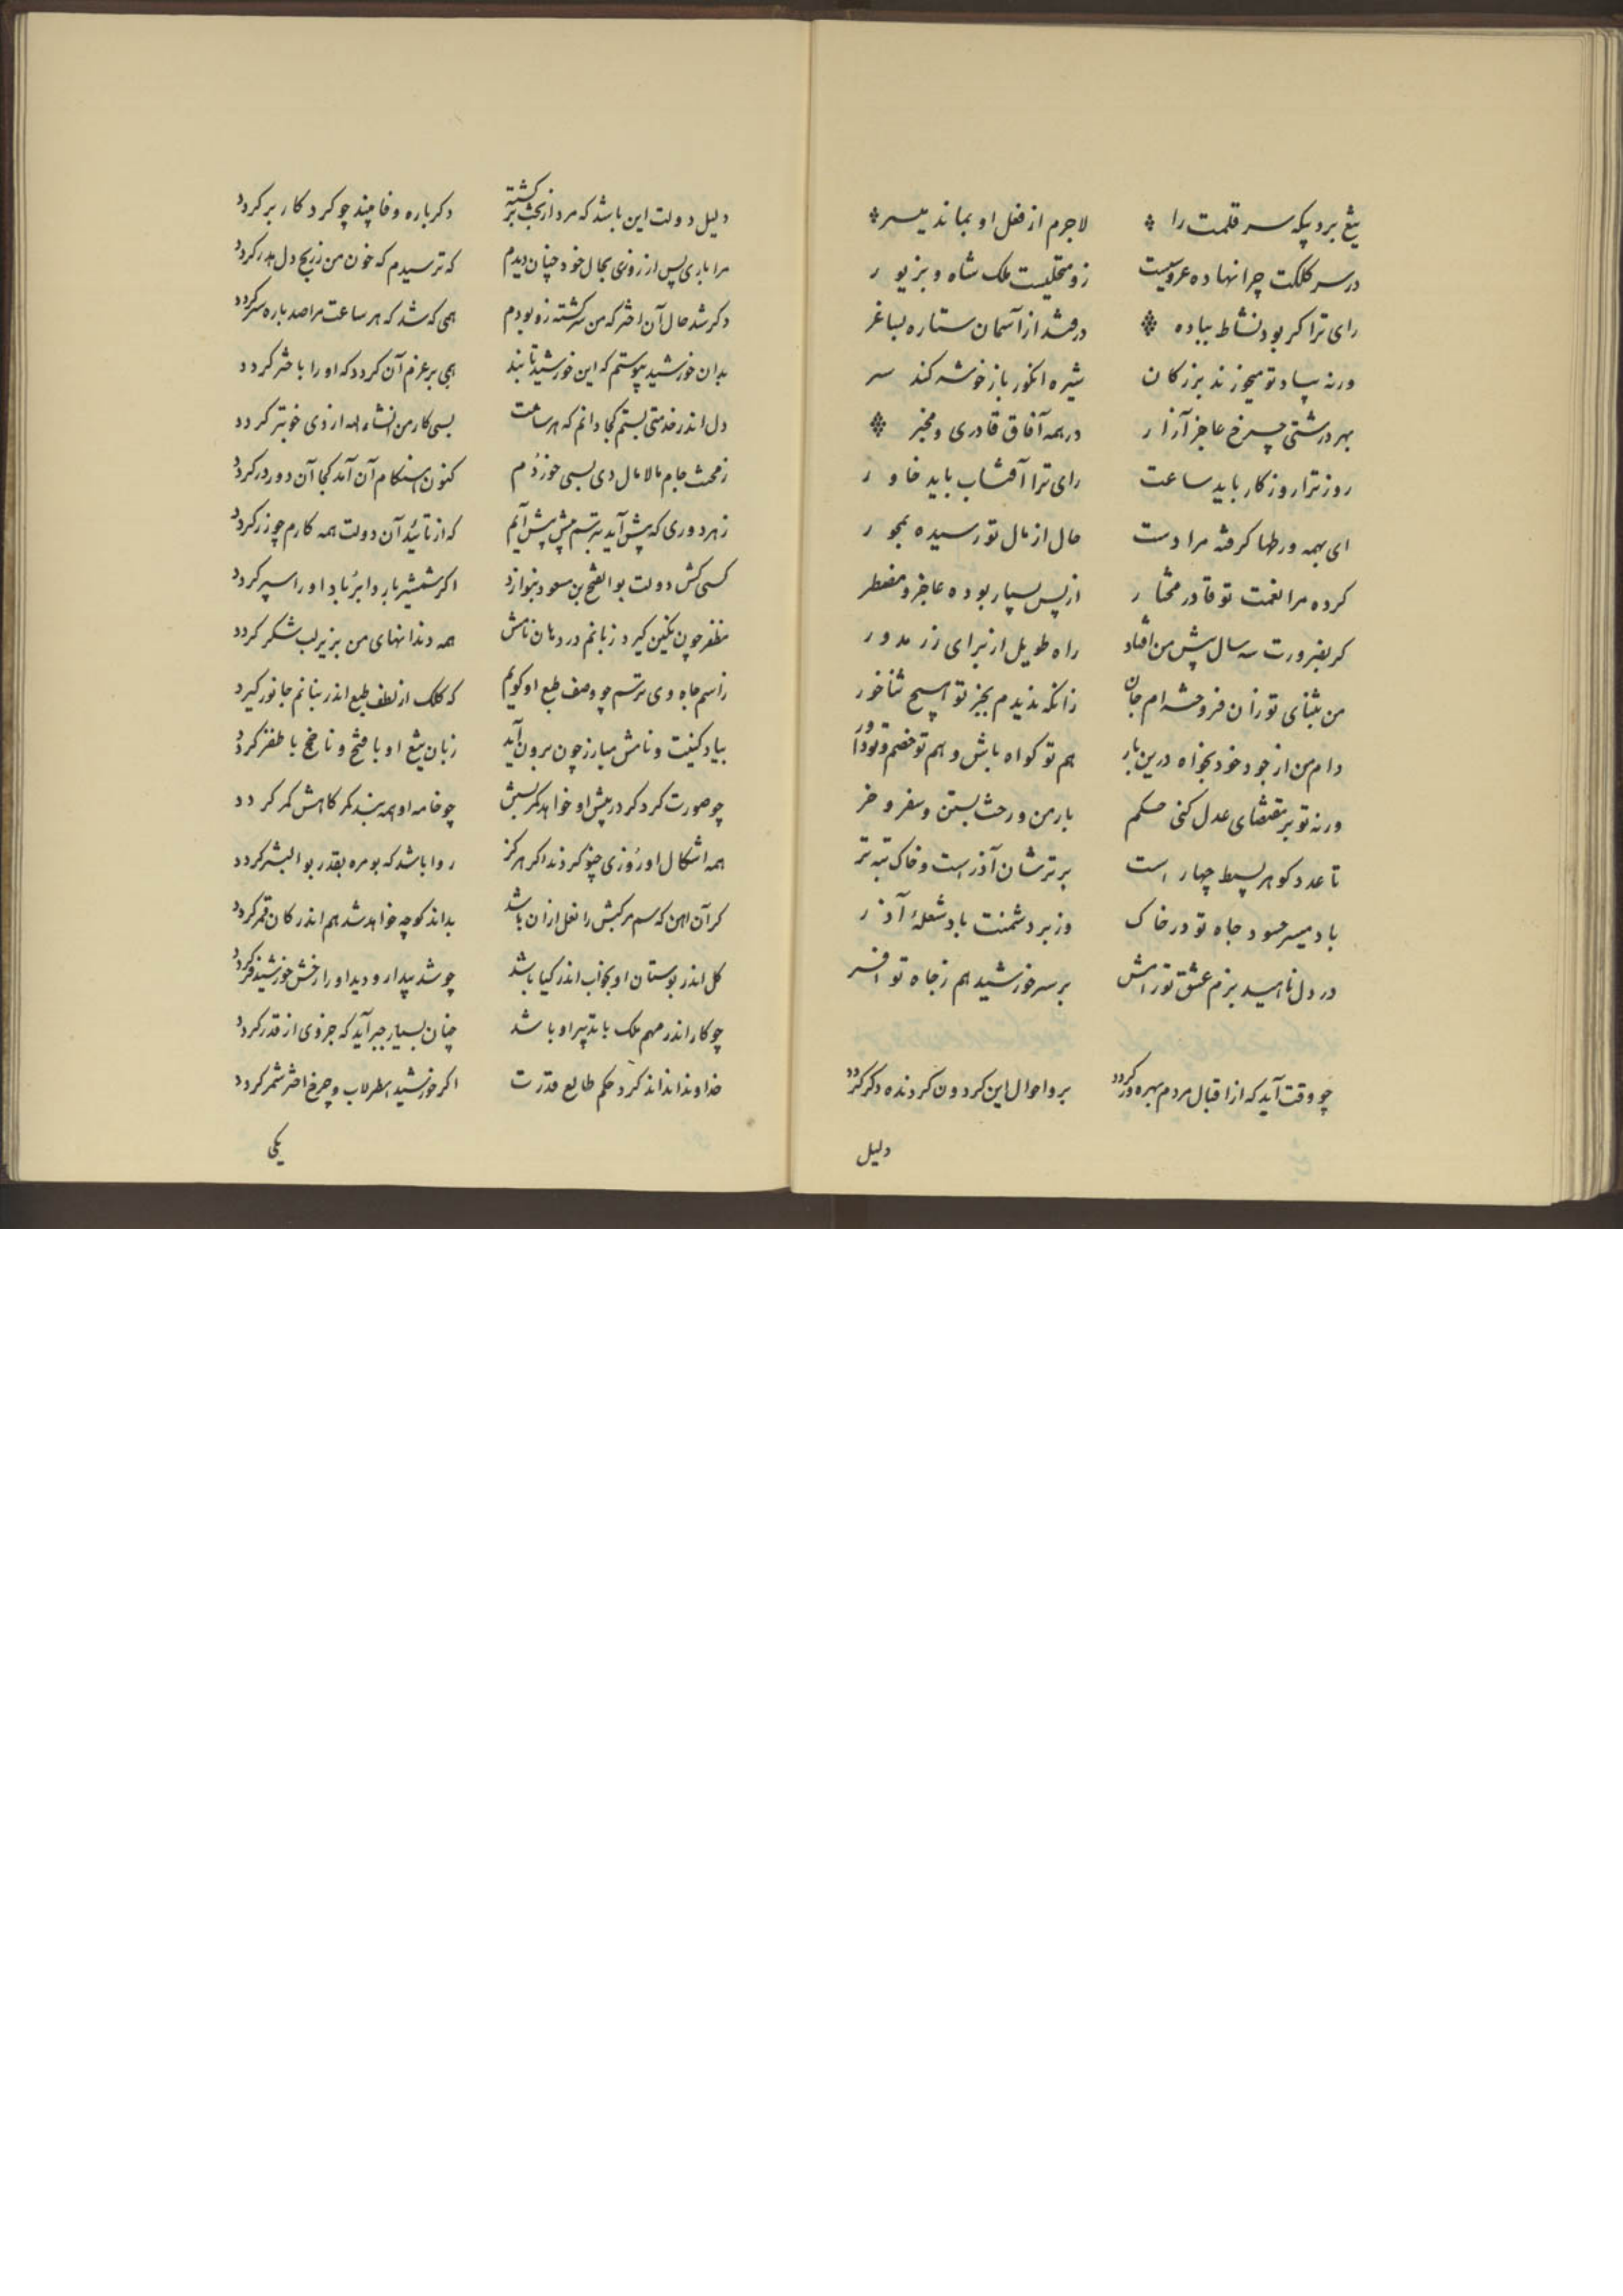 تیغ برد پیکه سر قلمت را لاجرم از فعل او بماند میسر
در سر کلکت چرا نهاده عروسیت زو متحلیست ملک شاه و بزیور
رای ترا کر بود نشاط بباده درفشد از آسمان ستاره بساغر
ورنه بیاد تو میخورند بزرکان شیره انکور باز خوشه کند سر
بهر درشتی چرخ عاجز آزار در همه آفاق قادری و مخیر
روز ترا روزکار باید ساعت رای ترا آفتاب باید خاور
ای بهمه ورطها کرفته مرا دست حال از مال تو رسیده بمجور
کرده مرا نعمت تو قادر مختار از پس بسیار بوده عاجز و مضطر
کر بضرورت سه سال پیش من افتاد راه طویل از برای زر مدور
من بثنای تو زان فروخته‌ام جان زانکه ندیدم بجز تو هیچ ثناخور
دام من از جود خود بخواه درین بار هم تو کواه باش و هم تو خصم و تو داور
ورنه تو بر مقتضای عدل کنی حکم بار من و رخت بستن و سفر و خر
تا عدد کوهر بسیط چهار است برترشان آذر است و خاک تبه تر
باد میسر حسود جاه تو در خاک وز بر دشمنت باد شعلهٔ آذر
در دل ناهید بزم عشق تو رامش بر سر خورشید هم ز جاه تو افسر
چو وقت آید که از اقبال مردم بهره ور کردد بر و احوال این کردون کردنده دکر کردد
دلیل
دلیل دولت این باشد که مرد از بخت بر کشته دکرباره وفا بیند چو کرد کار بر کردد
مرا باری پس از روزی بحال خود چنان دیدم که ترسیدم که خون من ز رنج دل هدر کردد
دکر شد حال آن اختر که من سرکشته زو بودم همی که شد که هر ساعت مرا صد باره سر کردد
بدان خورشید پیوستم که این خورشید تابنده همی بر عزم آن کردد که او را باختر کردد
دل اندر خدمتی بستم کجا دانم که هر ساعت بسی کار من انشاءالله از دی خوبتر کردد
ز محنت جام مالامال دی بسی خوردم کنون هنکام آن آمد کجا آن دور در کردد
ز هر دوری که پیش آید نترسم پیش پیش آیم که از تائید آن دولت همه کارم چو زر کردد
کسی کش دولت بوالفتح بن مسعود بنوازد اکر شمشیر بارد ابر باد او را سپر کردد
مظفر چون نکین کیرد زبانم در دهان نامش همه دندانهای من بزیر لب شکر کردد
ز اسم جاه وی ترسم چو وصف طبع او کویم که کلک از لطف طبع اندر بنانم جانور کیرد
بیاد کنیت و نامش مبارز چون برون آید زبان تیغ او با فتح و ناخج با ظفر کردد
چو صورت کرد کر در پیش او خواهد کمر بستن چو خامه او همه بند کمر کاهش کمر کردد
همه اشکال او روزی چنو کردند اکر هرکز روا باشد که بومره بقدر بوالبشر کردد
کر آن آهن که سم مرکبش را نعل از آن باشد بداند کو چه خواهد شد هم اندر کان قمر کردد
کل اندر بوستان او بخواب اندر کیا باشد چو شد بیدار و دید او را رخش خورشید فر کردد
چو کار اندر مهم ملک با تدبیر او باشد چنان بسیار جبر آید که جزوی از قدر کردد
خداوندا نداند کرد حکم طالع قدرت اکر خورشید اسطرلاب و چرخ اختر شمر کردد
یکی